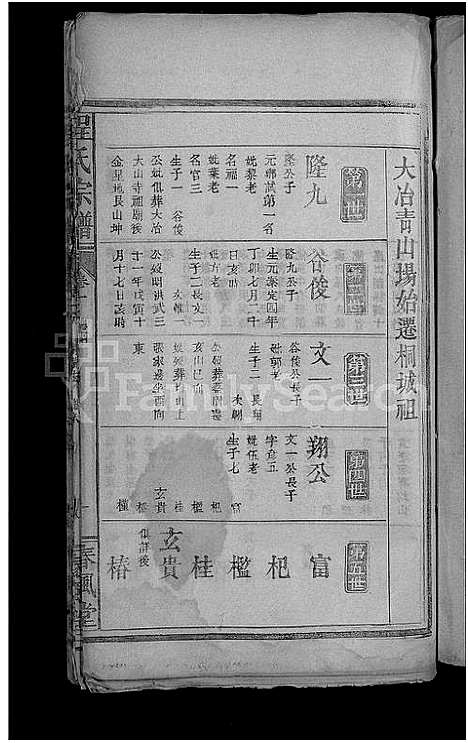 大冶青山場始遷桐城祖
第一世
隆九
隆公子
元鄉試第一名
妣黎老
名福一
妣葉老
名官三
生子一 谷俊
公妣俱葬大冶
大山寺祖廟後
金星地艮山坤
谷俊
隆九公子
生元泰定四年
丁卯七月二十
日亥時
妣方老
生子二長文一
次維一
公歿明洪武三
十一年戊寅十
月十七日亥時
第三世
文一
谷俊公長子
妣郭老
生子二 長翔
次翱
亥山巳向
東
第四世
翔公
文一公長子
字彥五
妣伍老
生子七
富
杞
檻
桂
玄貴
椿
第五世
富
杞
檻
桂
玄貴
俱詳後
椿
氏宗譜
春風堂
FamilySearch